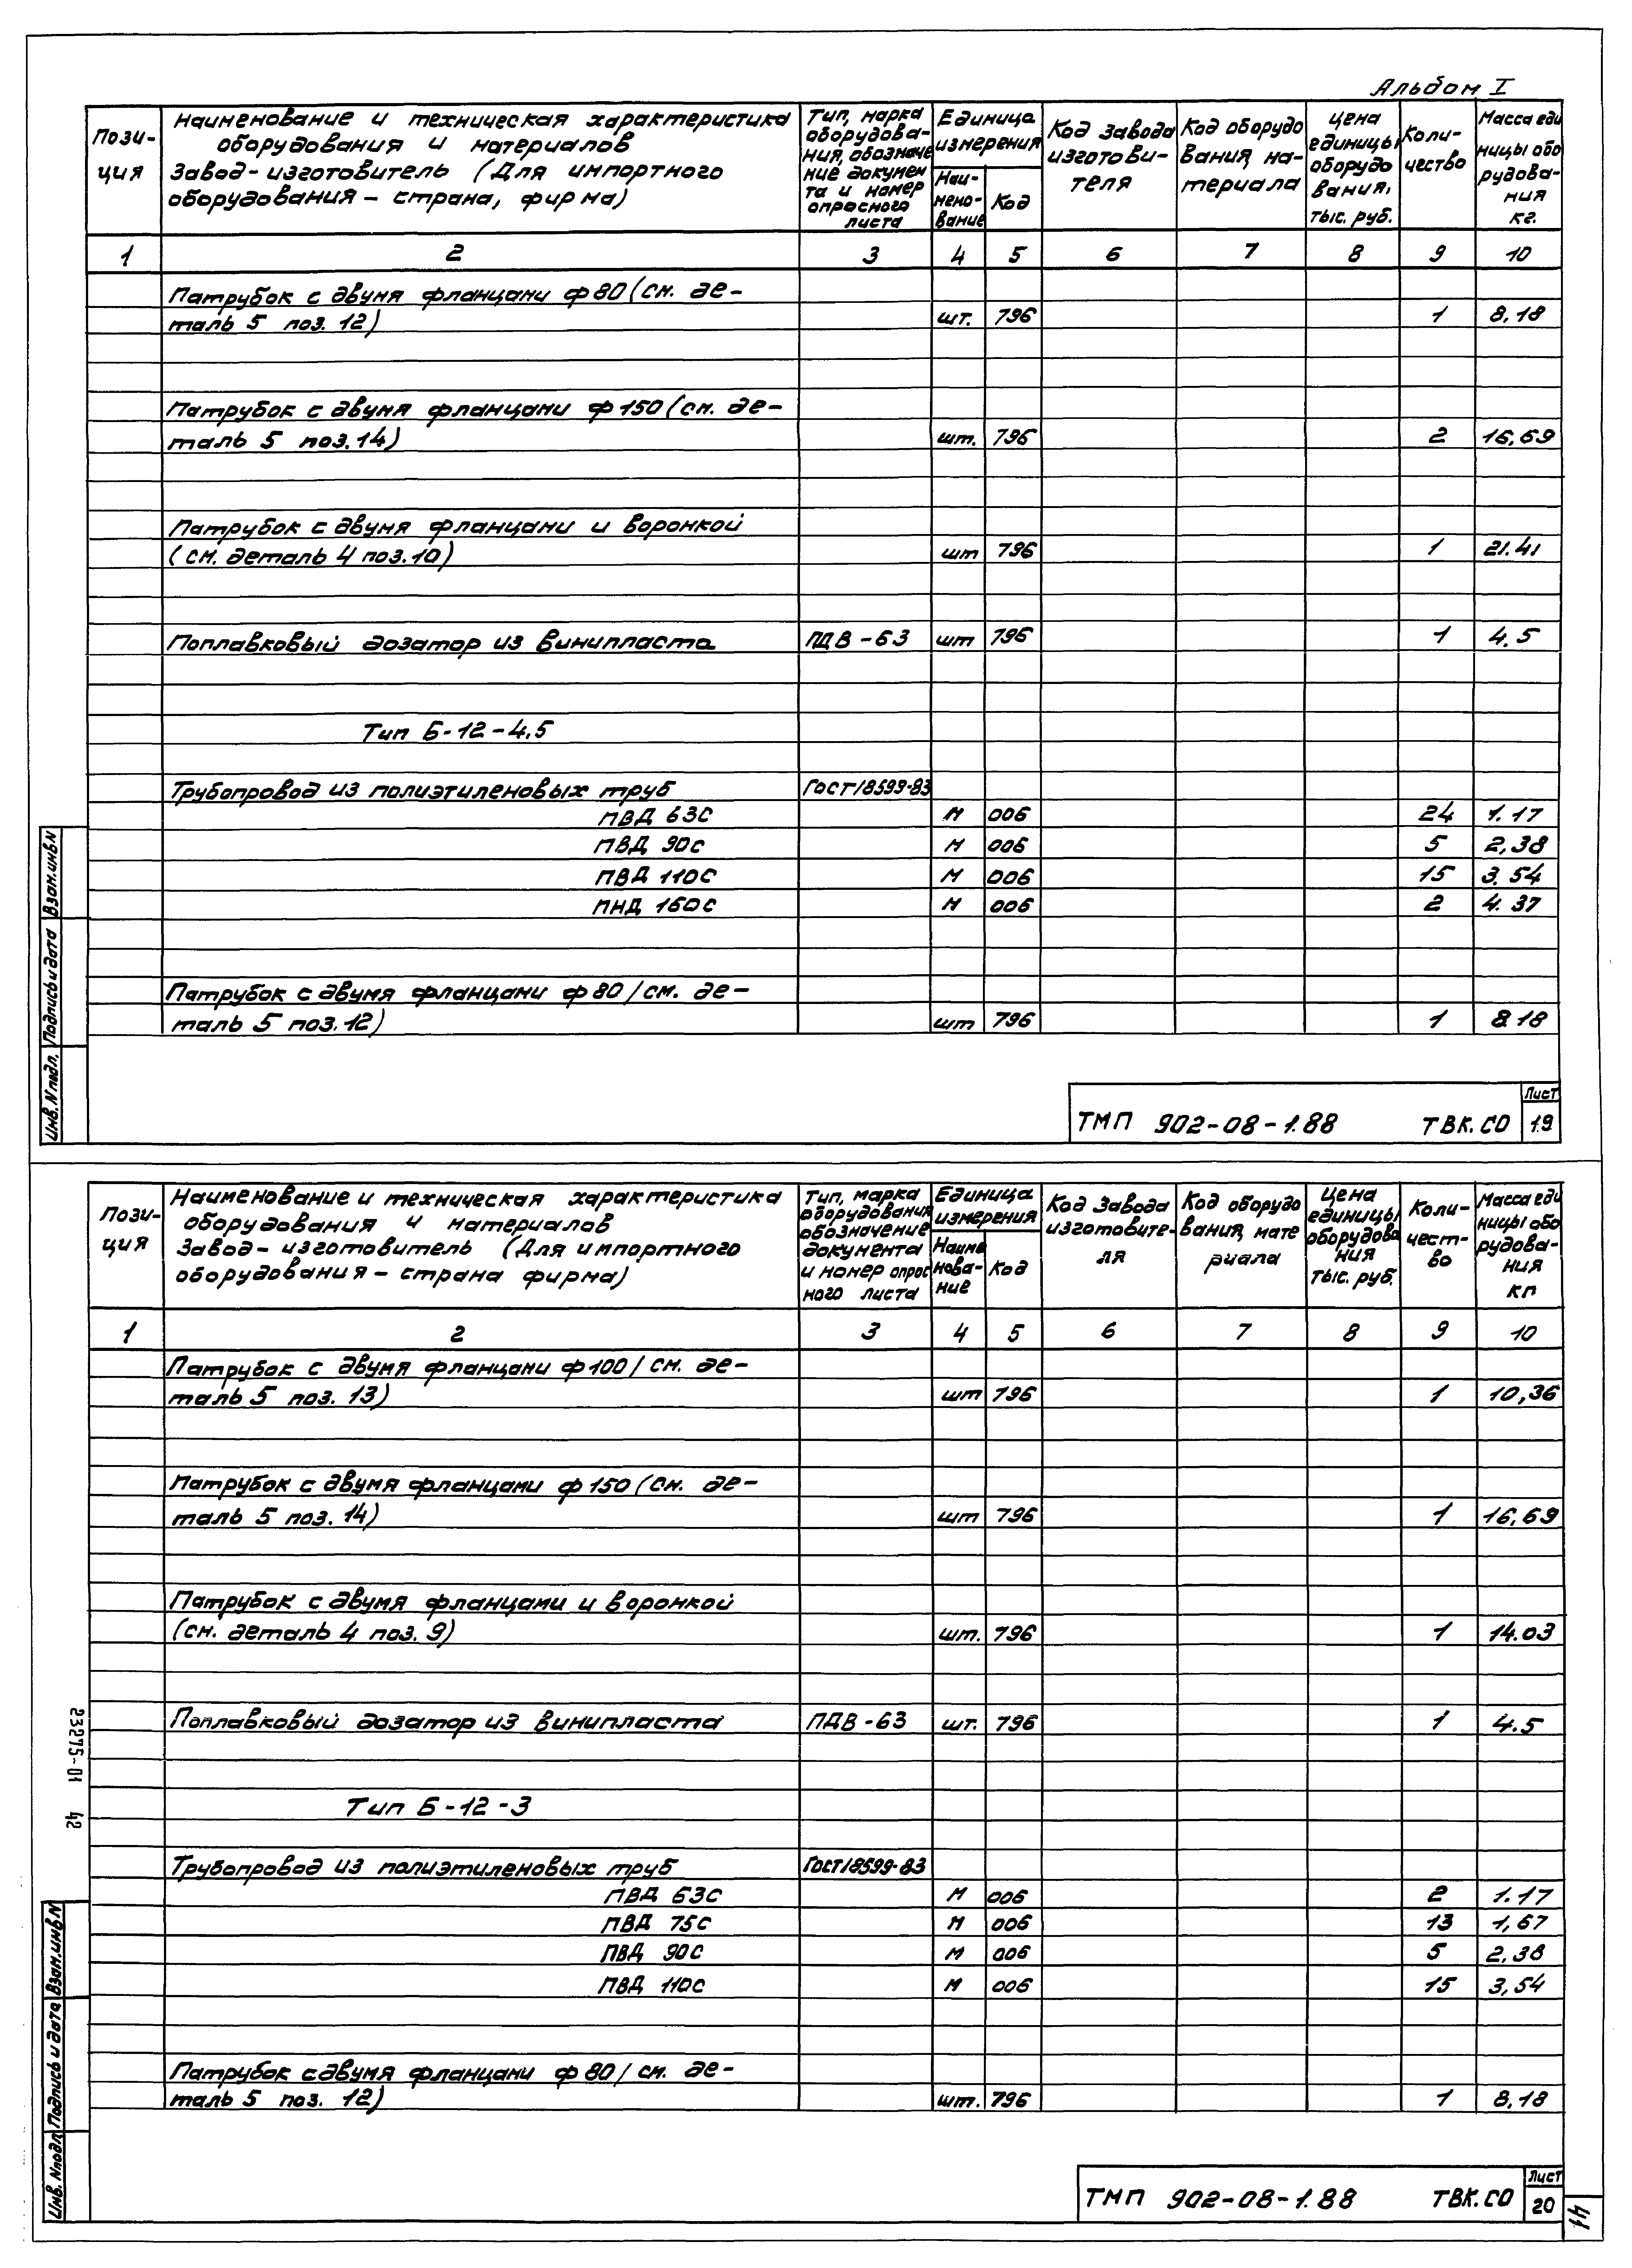 Альбом I
Пози-
ция
Наименование и техническая характеристика
оборудования и материалов
Завод-изготовитель (Для импортного
оборудования - страна, фирма)
Тип, марка
оборудова-
ния, обозначе
ние докумен
та и номер
опросного
листа
Единица
измерения
Наи-
мено-
вание
Код
Код завода
изготови-
теля
Код оборудо
вания, ма-
териала
Цена
единицы
оборудо
вания,
тыс. руб.
Коли-
чество
Масса еди
ницы обо
рудова-
ния
кг.
1 2 3 4 5 6 7 8 9 10
Патрубок с двумя фланцами ф 80 (см. де-
таль 5 поз. 12) шт. 796 1 8,18
Патрубок с двумя фланцами ф 150 (см. де-
таль 5 поз. 14) шт. 796 2 16,69
Патрубок с двумя фланцами и воронкой
(см. деталь 4 поз. 10) шт 796 1 21.41
Поплавковый дозатор из винипласта ПДВ-63 шт 796 1 4.5
Тип Б-12-4,5
Трубопровод из полиэтиленовых труб Гост 18599-83
ПВД 63С М 006 24 1.17
ПВД 90С М 006 5 2,38
ПВД 110С М 006 15 3.54
ПНД 160С М 006 2 4.37
Патрубок с двумя фланцами ф 80 / см. де-
таль 5 поз. 12) шт 796 1 8.18
Взам. инв N
Подпись и дата
Инв. N подл.
ТМП 902-08-1.88 ТВК.СО
Лист
19
Пози-
ция
Наименование и техническая характеристика
оборудования и материалов
Завод-изготовитель (Для импортного
оборудования - страна фирма)
Тип, марка
оборудования
обозначение
документа
и номер опрос
ного листа
Единица
измерения
Наиме
нова-
ние
Код
Код завода
изготовите-
ля
Код оборудо
вания, мате
риала
Цена
единицы
оборудова
ния
тыс. руб.
Коли-
чест-
во
Масса еди
ницы обо
рудова-
ния
кп
1 2 3 4 5 6 7 8 9 10
Патрубок с двумя фланцами ф 100 / см. де-
таль 5 поз. 13) шт 796 1 10,36
Патрубок с двумя фланцами ф 150 (см. де-
таль 5 поз. 14) шт 796 1 16,69
Патрубок с двумя фланцами и воронкой
(см. деталь 4 поз. 9) шт. 796 1 14.03
Поплавковый дозатор из винипласта ПДВ-63 шт. 796 1 4.5
Тип Б-12-3
Трубопровод из полиэтиленовых труб Гост 18599-83
ПВД 63С М 006 2 1.17
ПВД 75С М 006 13 1,67
ПВД 90С М 006 5 2.38
ПВД 110С М 006 15 3,54
Патрубок с двумя фланцами ф 80 / см. де-
таль 5 поз. 12) шт. 796 1 8,18
23275-01 42
Взам. инв N
Подпись и дата
Инв. N подл
ТМП 902-08-1.88 ТВК.СО
Лист
20
41